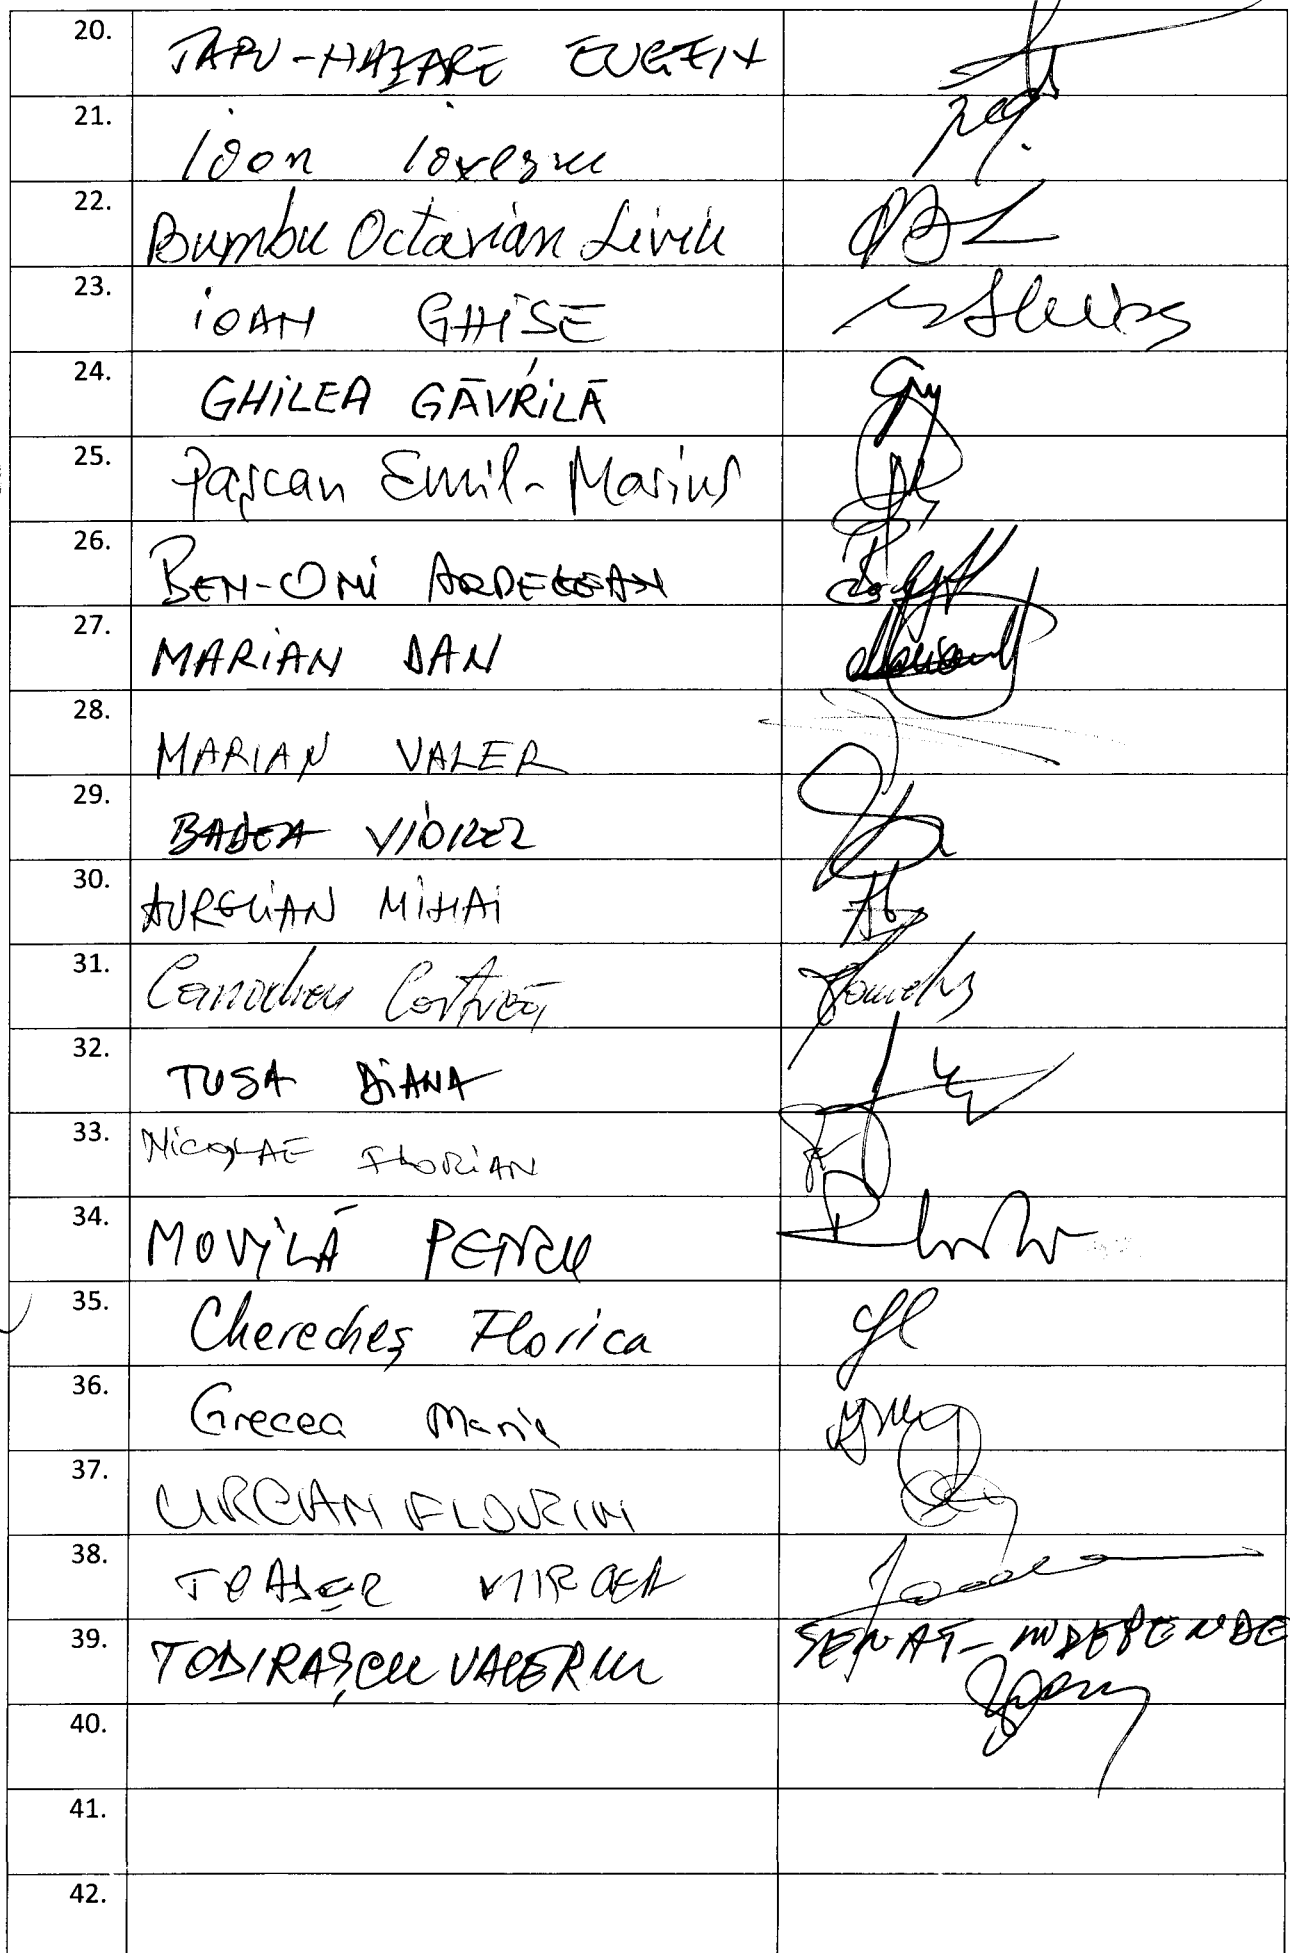 20. ȚAPU-NAZARE EUGEN
21. Ioan Iovescu
22. Bumbu Octavian Liviu
23. IOAN GHIȘE
24. GHILEA GĂVRILĂ
25. Pașcan Emil-Marius
26. BEN-ONI ARDELEAN
27. MARIAN DAN
28. MARIAN VALER
29. BADEA VIOREL
30. AURELIAN MIHAI
31. Canacheu Costică
32. TUSA DIANA
33. NICOLAE FLORIAN
34. MOVILĂ PETRU
35. Cherecheș Florica
36. Grecea Maria
37. URCAN FLORIN
38. TOADER MIRCEA
39. TODIRAȘCU VALERIU SENAT-INDEPENDE
40.
41.
42.